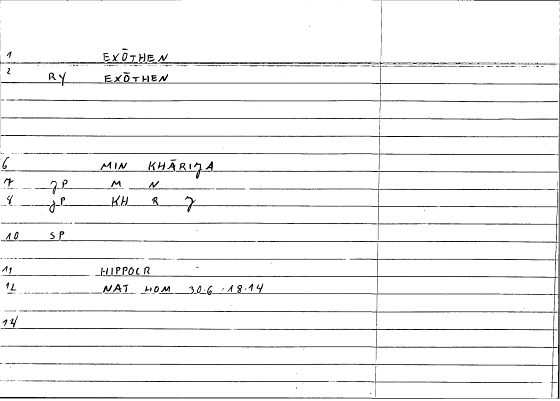 1 EXŌTHEN
2 RY EXŌTHEN
6 MIN KHĀRIJA
7 JP M N
8 JP KH R J
10 SP
11 HIPPOCR
12 NAT HOM 30.6 .18.14
14